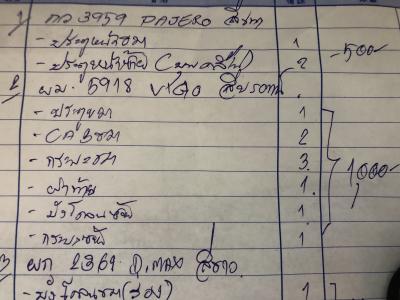 1) กว 3959 PAJERO สีเทา
- ประตูหน้าขวา 1
- ประตูหน้าซ้าย 2 - 500 -
2 ผม. 5918 VIGO
- ประตูขวา 1
- CAB ขวา 2
- กระบะขวา 3. 1000 -
- ฝาท้าย 1.
- บังโคลนซ้าย 1.
- กระบะซ้าย 1
3 ผก 2361 D.MAX สีขาว
- บังโคลนขวา (รอง) 1